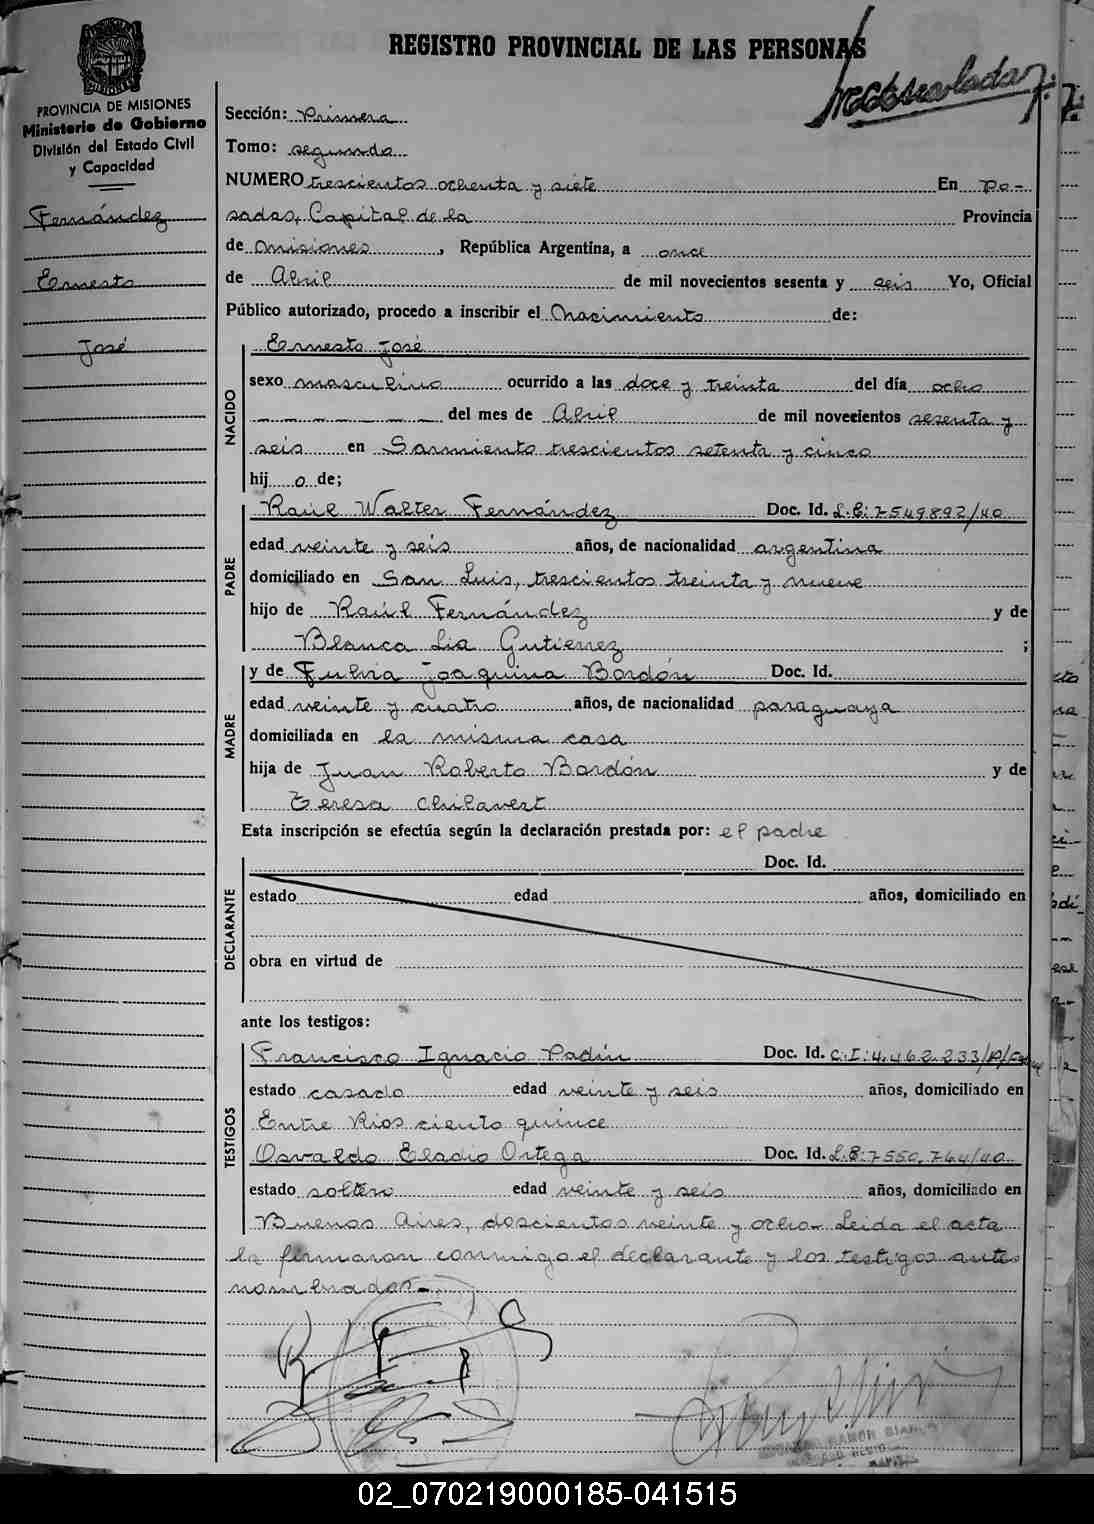 REGISTRO PROVINCIAL DE LAS PERSONAS
PROVINCIA DE MISIONES
Ministerio de Gobierno
División del Estado Civil
y Capacidad
Fernández
Ernesto
José
Sección: Primera
Tomo: segundo
NUMERO trescientos ochenta y siete En Po-
sadas, Capital de la Provincia
de Misiones, República Argentina, a once
de Abril de mil novecientos sesenta y seis Yo, Oficial
Público autorizado, procedo a inscribir el Nacimiento de:
NACIDO
Ernesto José
sexo masculino ocurrido a las doce y treinta del día ocho
del mes de Abril de mil novecientos sesenta y
seis en Sarmiento trescientos setenta y cinco
hij o de;
PADRE
Raúl Walter Fernández Doc. Id. L.E: 7549892/40
edad veinte y seis años, de nacionalidad argentina
domiciliado en San Luis, trescientos treinta y nueve
hijo de Raúl Fernández y de
Blanca Lia Gutierrez ;
MADRE
y de Fulvia Joaquina Bordón Doc. Id.
edad veinte y cuatro años, de nacionalidad paraguaya
domiciliada en la misma casa
hija de Juan Roberto Bordón y de
Teresa Chilavert
Esta inscripción se efectúa según la declaración prestada por: el padre
DECLARANTE
Doc. Id.
estado edad años, domiciliado en
obra en virtud de
ante los testigos:
TESTIGOS
Francisco Ignacio Padín Doc. Id. C.I: 4.462.233/P/
estado casado edad veinte y seis años, domiciliado en
Entre Rios ciento quince
Osvaldo Eladio Ortega Doc. Id. L.E: 7550.764/40
estado soltero edad veinte y seis años, domiciliado en
Buenos Aires, doscientos veinte y ocho- Leida el acta
la firmaron conmigo el declarante y los testigos antes
nombrados-
02_070219000185-041515